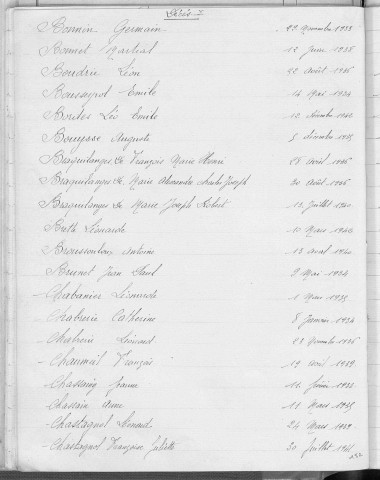 Décès
Bonnin Germain 22 Novembre 1935
Bonnet Martial 12 Juin 1938
Boudrie Léon 22 août 1936
Boussagnol Emile 14 Mai 1934
Boutes Léo Emile 10 Décembre 1942
Bouysse Auguste 5 Décembre 1935
Braquilanges de François Marie Henri 28 avril 1946
Braquilanges de Marie Alexandre Charles Joseph 20 Août 1936
Braquilanges de Marie Joseph Robert 12 Juillet 1940
Breth Léonarde 10 Mars 1942
Broussouloux Antoine 13 avril 1940
Brunet Jean Paul 9 Mai 1934
Chabanier Léonarde 1 Mars 1935
Chabrerie Catherine 8 Janvier 1934
Chabrerie Léonard 23 Novembre 1936
Chaumeil François 19 avril 1939
Chassaing Jeanne 11 Février 1938
Chassain Anne 11 Mars 1935
Chastagnol Léonard 24 Mars 1939
Chastagnol Françoise Juliette 30 Juillet 1941